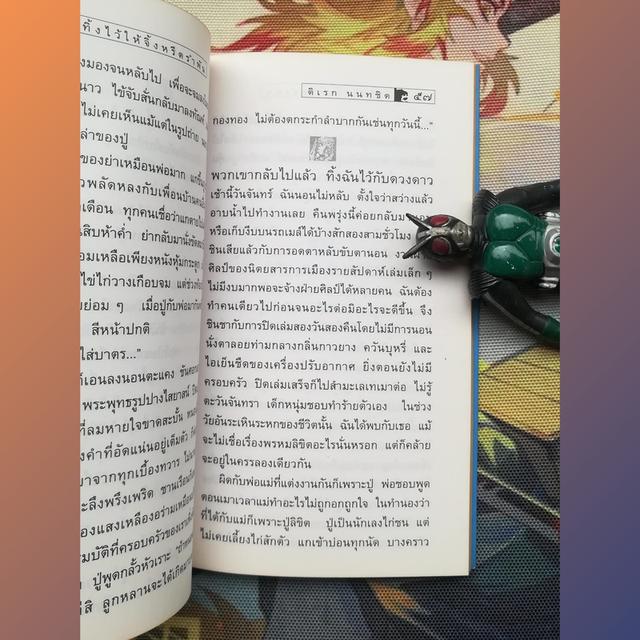 ทิ้งไว้ให้จิ้งหรีดรำพัน
องมองจนหลับไป เพื่อจะ
นาว ไข้จับสั่นกลับมาลง
ไม่เคยเห็นแม้แต่ในรูปถ่าย
ล่าของปู่
ของย่าเหมือนพ่อมาก
วพลัดหลงกับเพื่อนบ้าน
เดือน ทุกคนเชื่อว่าแก
นสิบห้าค่ำ ย่ากลับมานั่ง
อมเหลือเพียงหนังหุ้ม
ไข่ไก่วางเกือบจม แต่ช่าง
ยย่อม ๆ เมื่อปู่กับพ่อมา
สีหน้าปกติ
ใส่บาตร..."
ก็เอนลงนอนตะแคง
พระพุทธรูปปางไสยาสน์
ที่ลมหายใจขาดสะบั้น
งคำที่อัดแน่นอยู่เต็มตัว
มาจากทุกเบื้องทวาร
ะลึงพรึงเพริด ซานเรือน
องแสงเหลืองอร่าม
มบัติที่ครอบครัวของเรา
ปู่พูดกลั้วหัวเราะ
สิ ลูกหลานจะได้
ดิเรก นนทชิต ๕๗
กองทอง ไม่ต้องตระกำลำบากกันเช่นทุกวันนี้..."
พวกเขากลับไปแล้ว ทิ้งฉันไว้กับดวงดาว
เช้านี้วันจันทร์ ฉันนอนไม่หลับ ตั้งใจว่าสว่างแล้ว
อาบน้ำไปทำงานเลย คืนพรุ่งนี้ค่อยกลับมานอน
หรือเก็บงีบบนรถเมล์ได้บ้างสักสองสามชั่วโมง
ชินเสียแล้วกับการอดตาหลับขับตานอน
ศิลป์ของนิตยสารการเมืองรายสัปดาห์เล่มเล็ก ๆ
ไม่มีงบมากพอจะจ้างฝ่ายศิลป์ได้หลายคน ฉันต้อง
ทำคนเดียวไปก่อนจนอะไรต่อมิอะไรจะดีขึ้น จึง
ชินชากับการปิดเล่มสองวันสองคืนโดยไม่มีการนอน
นั่งตาลอยท่ามกลางกลิ่นกาวยาง ควันบุหรี่ และ
ไอเย็นชืดของเครื่องปรับอากาศ ยิ่งตอนยังไม่มี
ครอบครัว ปิดเล่มเสร็จก็ไปสำมะเลเทเมาต่อ ไม่รู้
ตะวันจันทรา เด็กหนุ่มชอบทำร้ายตัวเอง ในช่วง
วัยอันระเหินระหกของชีวิตนั้น ฉันได้พบกับเธอ แม้
จะไม่เชื่อเรื่องพรหมลิขิตอะไรนั่นหรอก แต่ก็คล้าย
จะอยู่ในครรลองเดียวกัน
ผิดกับพ่อแม่ที่แต่งงานกันก็เพราะปู่ พ่อชอบพูด
ตอนเมาเวลาแม่ทำอะไรไม่ถูกอกถูกใจ ในทำนองว่า
ที่ได้กับแม่ก็เพราะปู่ลิขิต ปู่เป็นนักเลงไก่ชน แต่
ไม่เคยเลี้ยงไก่สักตัว แกเข้าบ่อนทุกนัด บางคราว